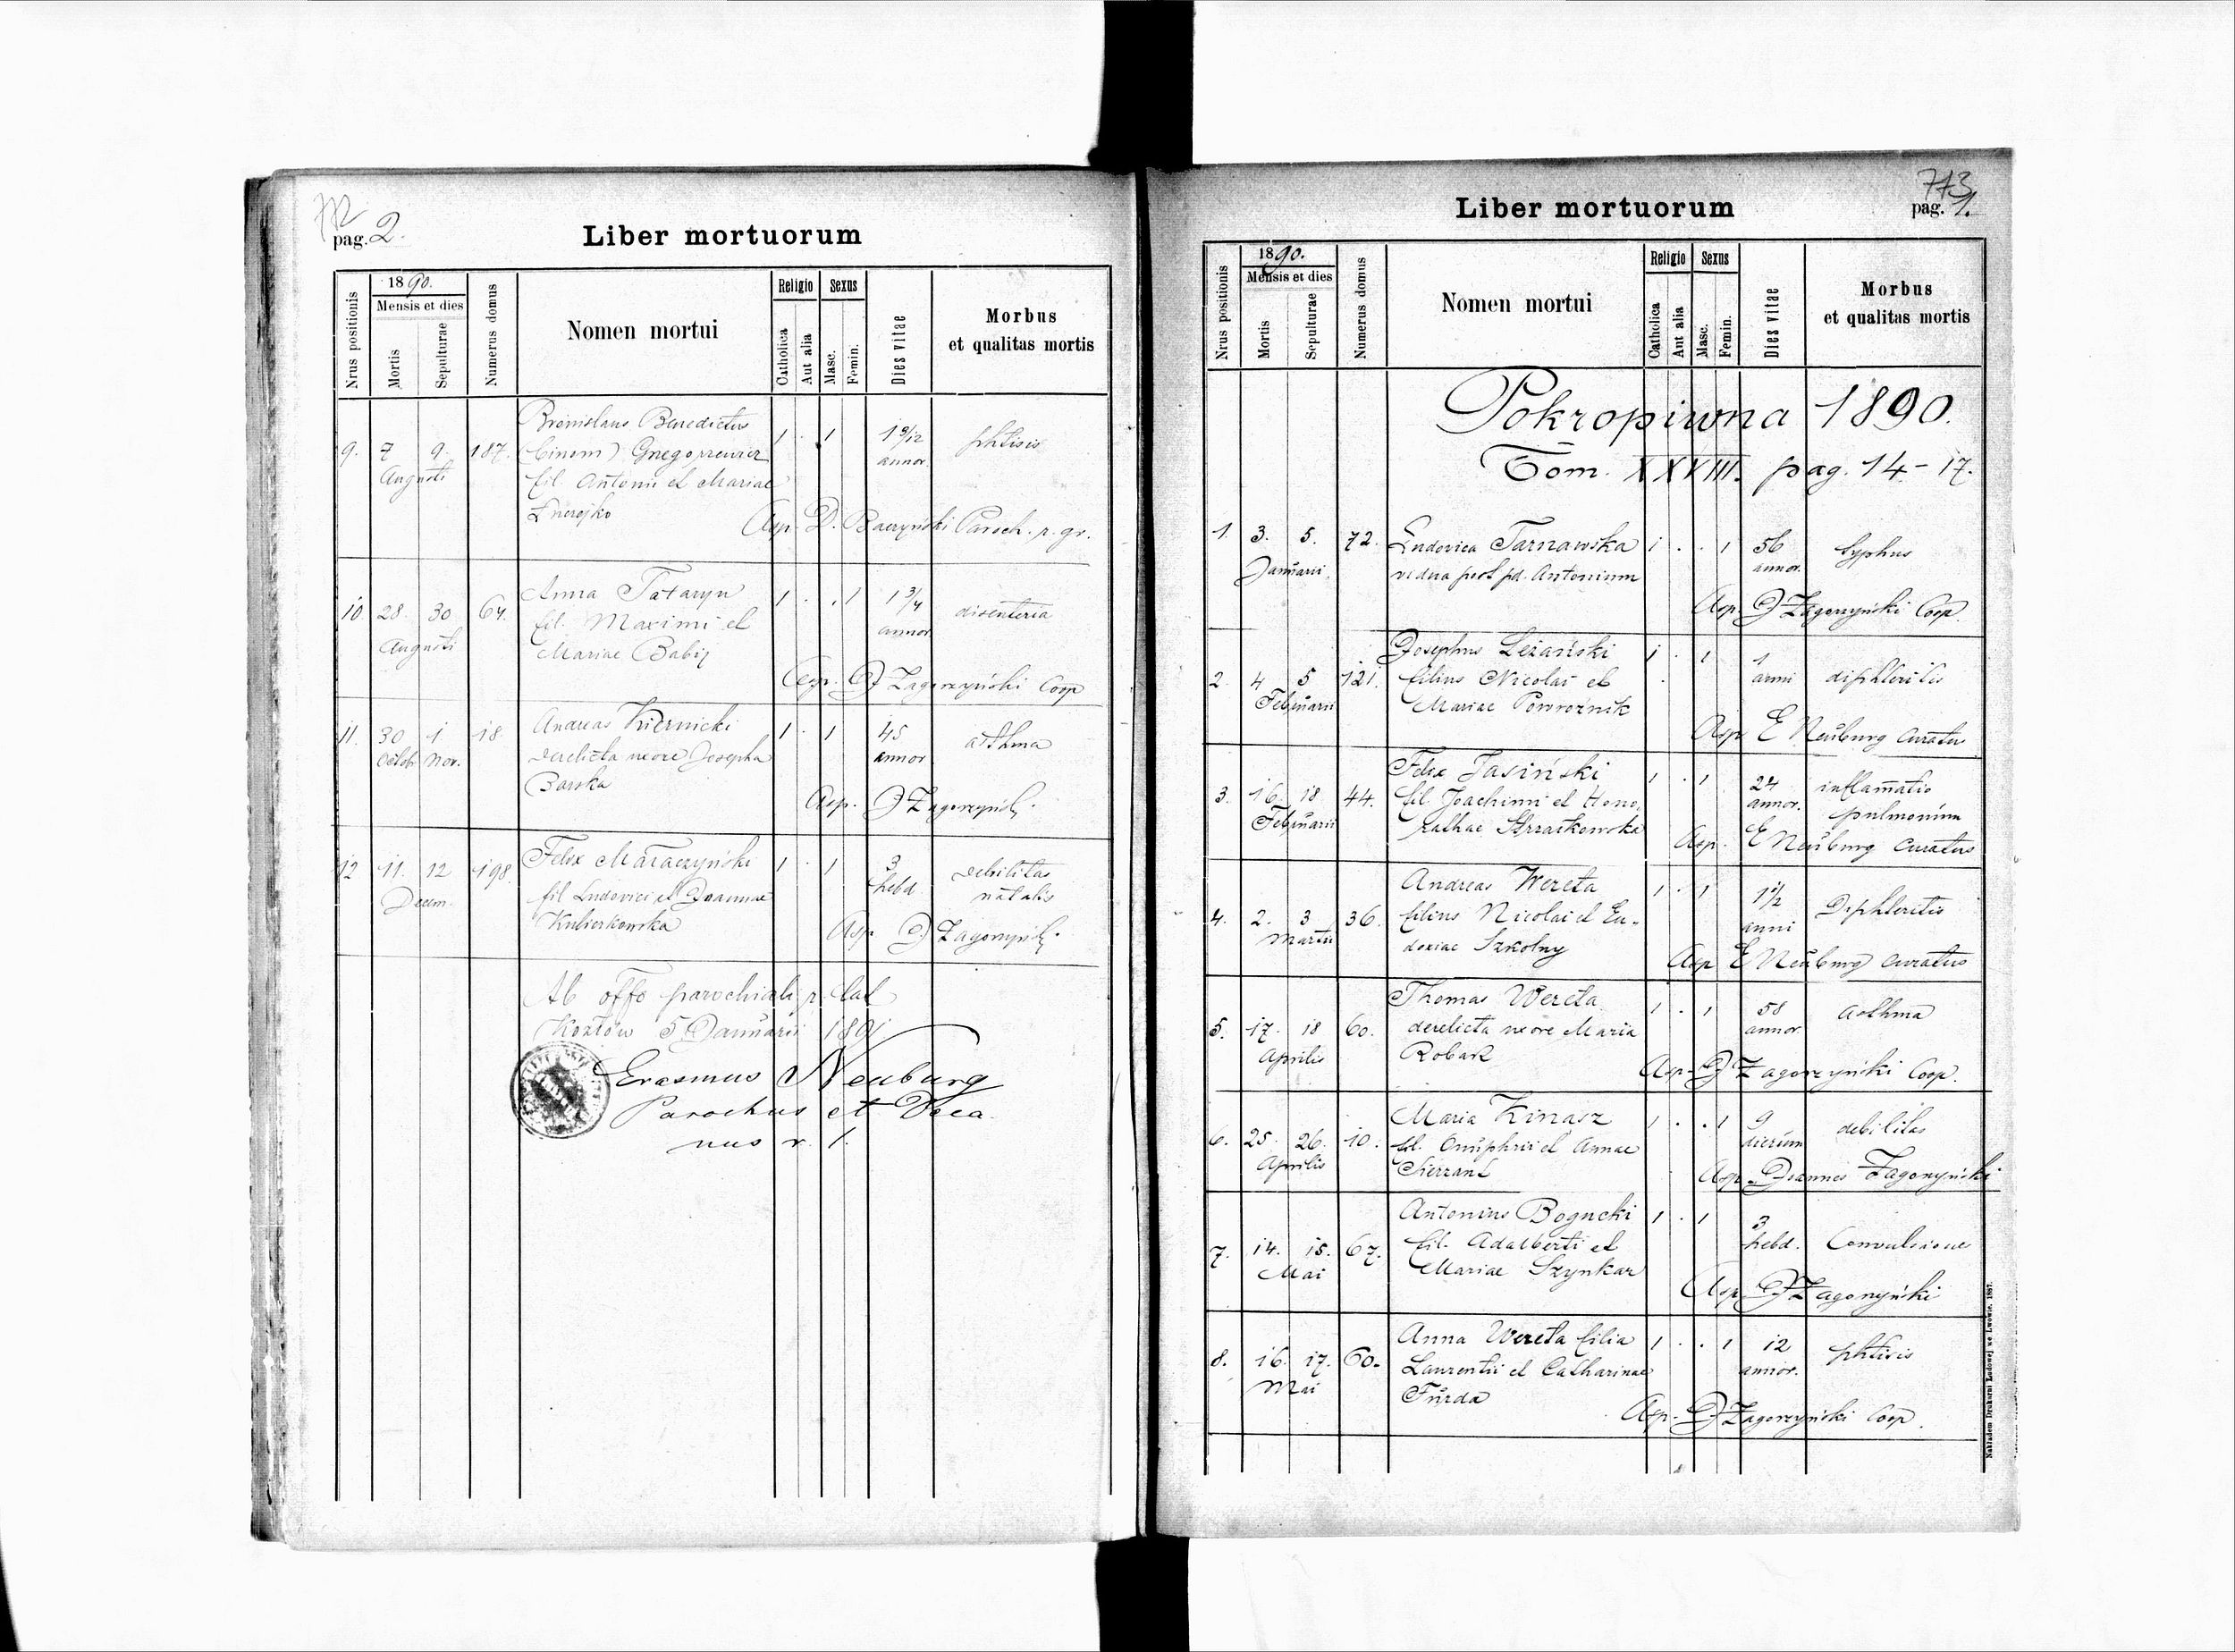 772
pag. 2.
Liber mortuorum
Nrus positionis
1890.
Mensis et dies
Mortis
Sepulturae
Numerus domus
Nomen mortui
Religio
Catholica
Aut alia
Sexus
Masc.
Femin.
Dies vitae
Morbus
et qualitas mortis
Bronislaus Benedictus
9. 7 9. 187. (binom) Gregorzewicz 1 . 1 1 9/12 phtisis
Augusti fil Antonii et Mariae annor.
Asp. D. Baczyński Paroch. r. gr.
Anna Tataryn
10. 28. 30 64. fil. Maximi et 1 . . 1 1 3/4 disenteria
Augusti Mariae Babij annor
Asp. J Zagorzyński Coop
Andreas Kiernicki
11. 30 1 18. derelicta uxore Josepha 1 . 1 45 asthma
Octob. Nov. Barska annor
Asp. J Zagorzyński
Felix Maraczyński
12 11. 12 198. fil Ludovici et Joannae 1 . 1 3 debilitas
Decem. hebd natalis
Asp J Zagorzyński
Ab offo parochiali r. lat
Kozłów 5 Januarii 1891
Erasmus Neuburg
Parochus et Deca
nus r. l.
773
pag. 1.
Liber mortuorum
Nrus positionis
1890.
Mensis et dies
Mortis
Sepulturae
Numerus domus
Nomen mortui
Religio
Catholica
Ant alia
Sexus
Masc.
Femin.
Dies vitae
Morbus
et qualitas mortis
Pokropiwna 1890.
Tom. XXXIII. pag. 14-17.
1. 3. 5. 72. Ludovica Tarnawska 1 . . 1 56 typhus
Januarii. vidua post pd. Antonium annor.
Asp. J Zagorzyński Coop.
Josephus Leżański
2. 4 5 121. filius Nicolai et 1 . 1 1 diphteritis
Februarii Mariae Powroźnik anni
Asp E Neuburg Curatus
Felix Jasiński
3. 16. 18 44. fil. Joachimi et Hono- 1 . 1 24 inflamatio
Februarii annor. pulmonum
Asp. E Neuburg Curatus
Andreas Wereta
4. 2. 3 36. filius Nicolai et Eu- 1 . 1 1 1/2 Diphteritis
Martii doxiae Szkolny anni
Asp E Neuburg curatus
Thomas Wereta
5. 17. 18 60. derelicta uxore Maria 1 . 1 58 Asthma
Aprilis Robak annor
Asp. J Zagorzyński Coop.
Maria Kinasz
6. 25. 26. 10. fil. Onuphrii et Annae 1 . . 1 9 debilitas
Aprilis dierum
Asp. Joannes Zagorzyński
Antonius Bogucki
7. 14. 15. 67. fil. Adalberti et 1 . 1 3 Convulsione
Mai Mariae Szynkar hebd.
Asp. J Zagorzyński
Anna Wereta filia
8. 16. 17. 60. Laurentii et Catharinae 1 . . 1 12 phtisis
Mai Furda annor.
Asp. J Zagorzyński Coop.
Nakładem Drukarni Ludowej we Lwowie. 1887.